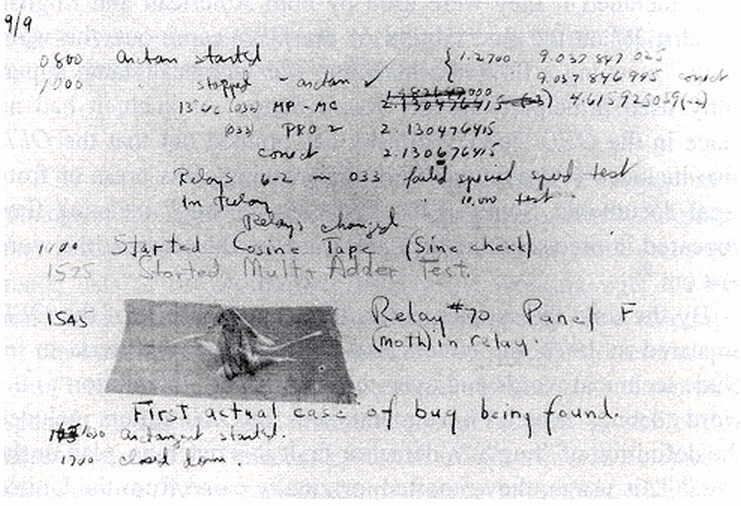 9/9
0800 Antan started { 1.2700 9.037 847 025
1000 " stopped - antan ✓ 9.037 846 995 conect
13"uc (032) MP - MC 2.130476415 (-3) 4.615925059(-2)
(033) PRO 2 2.130476415
conect 2.130676415
Relays 6-2 in 033 failed special speed test
in relay " 10,000 test
Relays changed
1100 Started Cosine Tape (Sine check)
1525 Started Mult + Adder Test.
1545 Relay #70 Panel F
(moth) in relay.
First actual case of bug being found.
1630 antangent started.
1700 closed down.